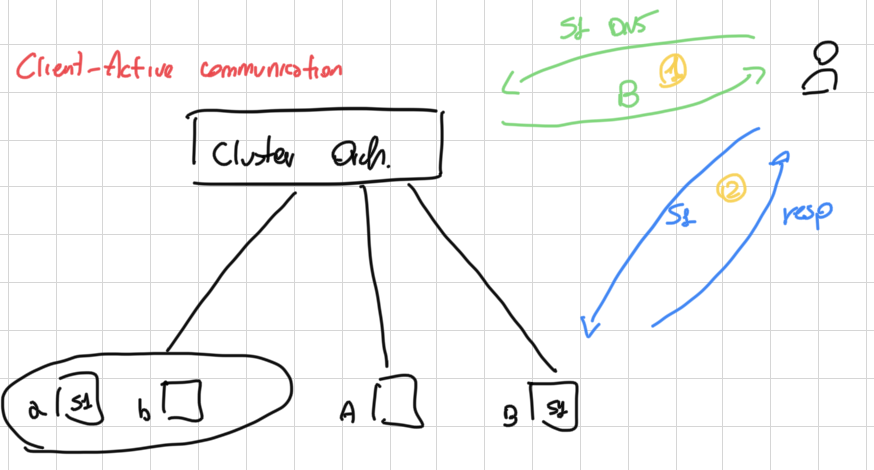 S1 DNS
Client-Active communication
1
B
Cluster Orch.
2
S1
resp
a
S1
b
A
B
S1